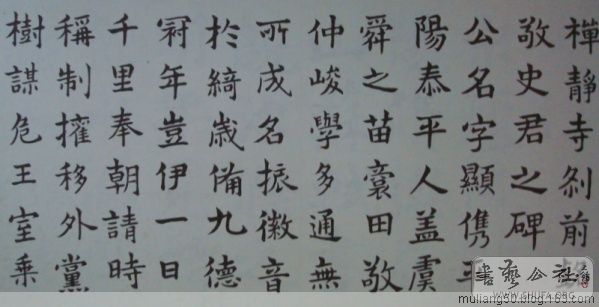 禪靜寺刹前
敬史君之碑
公名字顯儁平
陽泰平人蓋虞
舜之苗裔田敬
仲峻學多通無
所成名振徽音
於綺歲備九德
冠年豈伊一日
千里奉朝請時
稱制擅移外黨
樹謀危王室乗
書藝公社
WWW.SHUFA.ORG
muliang50.blog.163.com